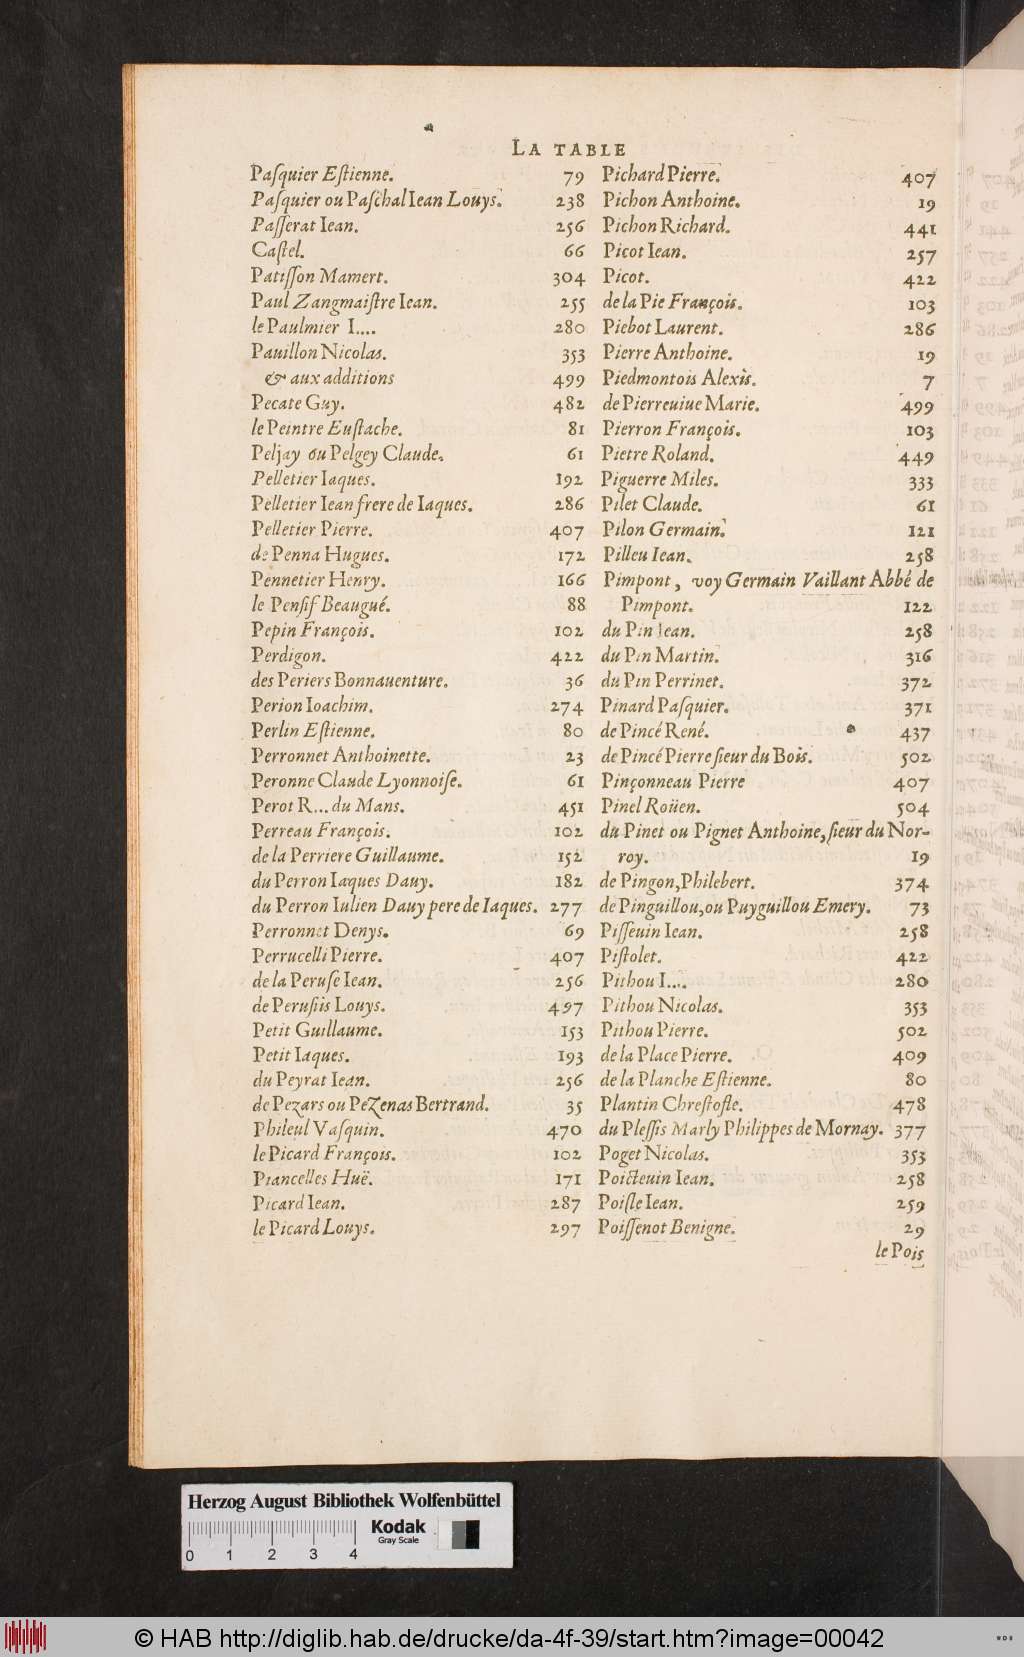 LA TABLE
Paſquier Eſtienne. 79
Paſquier ou Paſchal Iean Louys. 238
Paſſerat Iean. 256
Caſtel. 66
Patiſſon Mamert. 304
Paul Zangmaiſtre Iean. 255
le Paulmier I.... 280
Pauillon Nicolas. 353
& aux additions 499
Pecate Guy. 482
le Peintre Euſtache. 81
Peljay ou Pelgey Claude. 61
Pelletier Iaques. 192
Pelletier Iean frere de Iaques. 286
Pelletier Pierre. 407
de Penna Hugues. 172
Pennetier Henry. 166
le Penſif Beaugué. 88
Pepin François. 102
Perdigon. 422
des Periers Bonnauenture. 36
Perion Ioachim. 274
Perlin Eſtienne. 80
Perronnet Anthoinette. 23
Peronne Claude Lyonnoiſe. 61
Perot R... du Mans. 451
Perreau François. 102
de la Perriere Guillaume. 152
du Perron Iaques Dauy. 182
du Perron Iulien Dauy pere de Iaques. 277
Perronnet Denys. 69
Perrucelli Pierre. 407
de la Peruſe Iean. 256
de Peruſiis Louys. 497
Petit Guillaume. 153
Petit Iaques. 193
du Peyrat Iean. 256
de Pezars ou PeZenas Bertrand. 35
Phileul Vaſquin. 470
le Picard François. 102
Piancelles Huë. 171
Picard Iean. 287
le Picard Louys. 297
Pichard Pierre. 407
Pichon Anthoine. 19
Pichon Richard. 441
Picot Iean. 257
Picot. 422
de la Pie François. 103
Piebot Laurent. 286
Pierre Anthoine. 19
Piedmontois Alexis. 7
de Pierreuiue Marie. 499
Pierron François. 103
Pietre Roland. 449
Piguerre Miles. 333
Pilet Claude. 61
Pilon Germain. 121
Pilleu Iean. 258
Pimpont, voy Germain Vaillant Abbé de
Pimpont. 122
du Pin Iean. 258
du Pin Martin. 316
du Pin Perrinet. 372
Pinard Paſquier. 371
de Pincé René. 437
de Pincé Pierre ſieur du Bois. 502
Pinçonneau Pierre 407
Pinel Roüen. 504
du Pinet ou Pignet Anthoine, ſieur du Nor-
roy. 19
de Pingon, Philebert. 374
de Pinguillou, ou Puyguillou Emery. 73
Piſſeuin Iean. 258
Piſtolet. 422
Pithou I.... 280
Pithou Nicolas. 353
Pithou Pierre. 502
de la Place Pierre. 409
de la Planche Eſtienne. 80
Plantin Chreſtofle. 478
du Pleſſis Marly Philippes de Mornay. 377
Poget Nicolas. 353
Poicteuin Iean. 258
Poiſle Iean. 259
Poiſſenot Benigne. 29
le Pois
Herzog August Bibliothek Wolfenbüttel
Kodak
Gray Scale
0 1 2 3 4
© HAB http://diglib.hab.de/drucke/da-4f-39/start.htm?image=00042